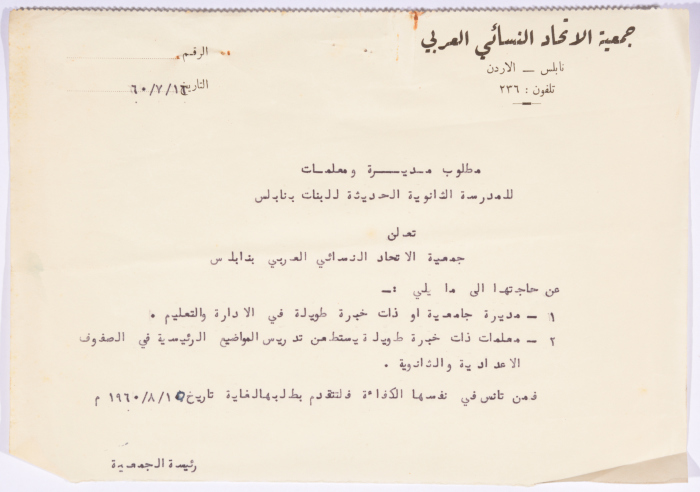 جمعية الاتحاد النسائي العربي
نابلس — الاردن
تلفون : ٢٣٦
الرقم
التاريخ ٦٠/٧/١٣
مطلوب مديـــرة ومعلمات
للمدرسة الثانوية الحديثة للبنات بنابلس
تعلن
جمعية الاتحاد النسائي العربي بنابلس
عن حاجتها الى ما يلي :ـ
١ – مديرة جامعية او ذات خبرة طويلة في الادارة والتعليم .
٢ – معلمات ذات خبرة طويلة يستطعن تدريس المواضيع الرئيسية في الصفوف
الاعدادية والثانوية .
فمن تانس في نفسها الكفاءة فلتتقدم بطلبها لغاية تاريخ ١٩٦٠/٨/١٥ م
رئيسة الجمعية